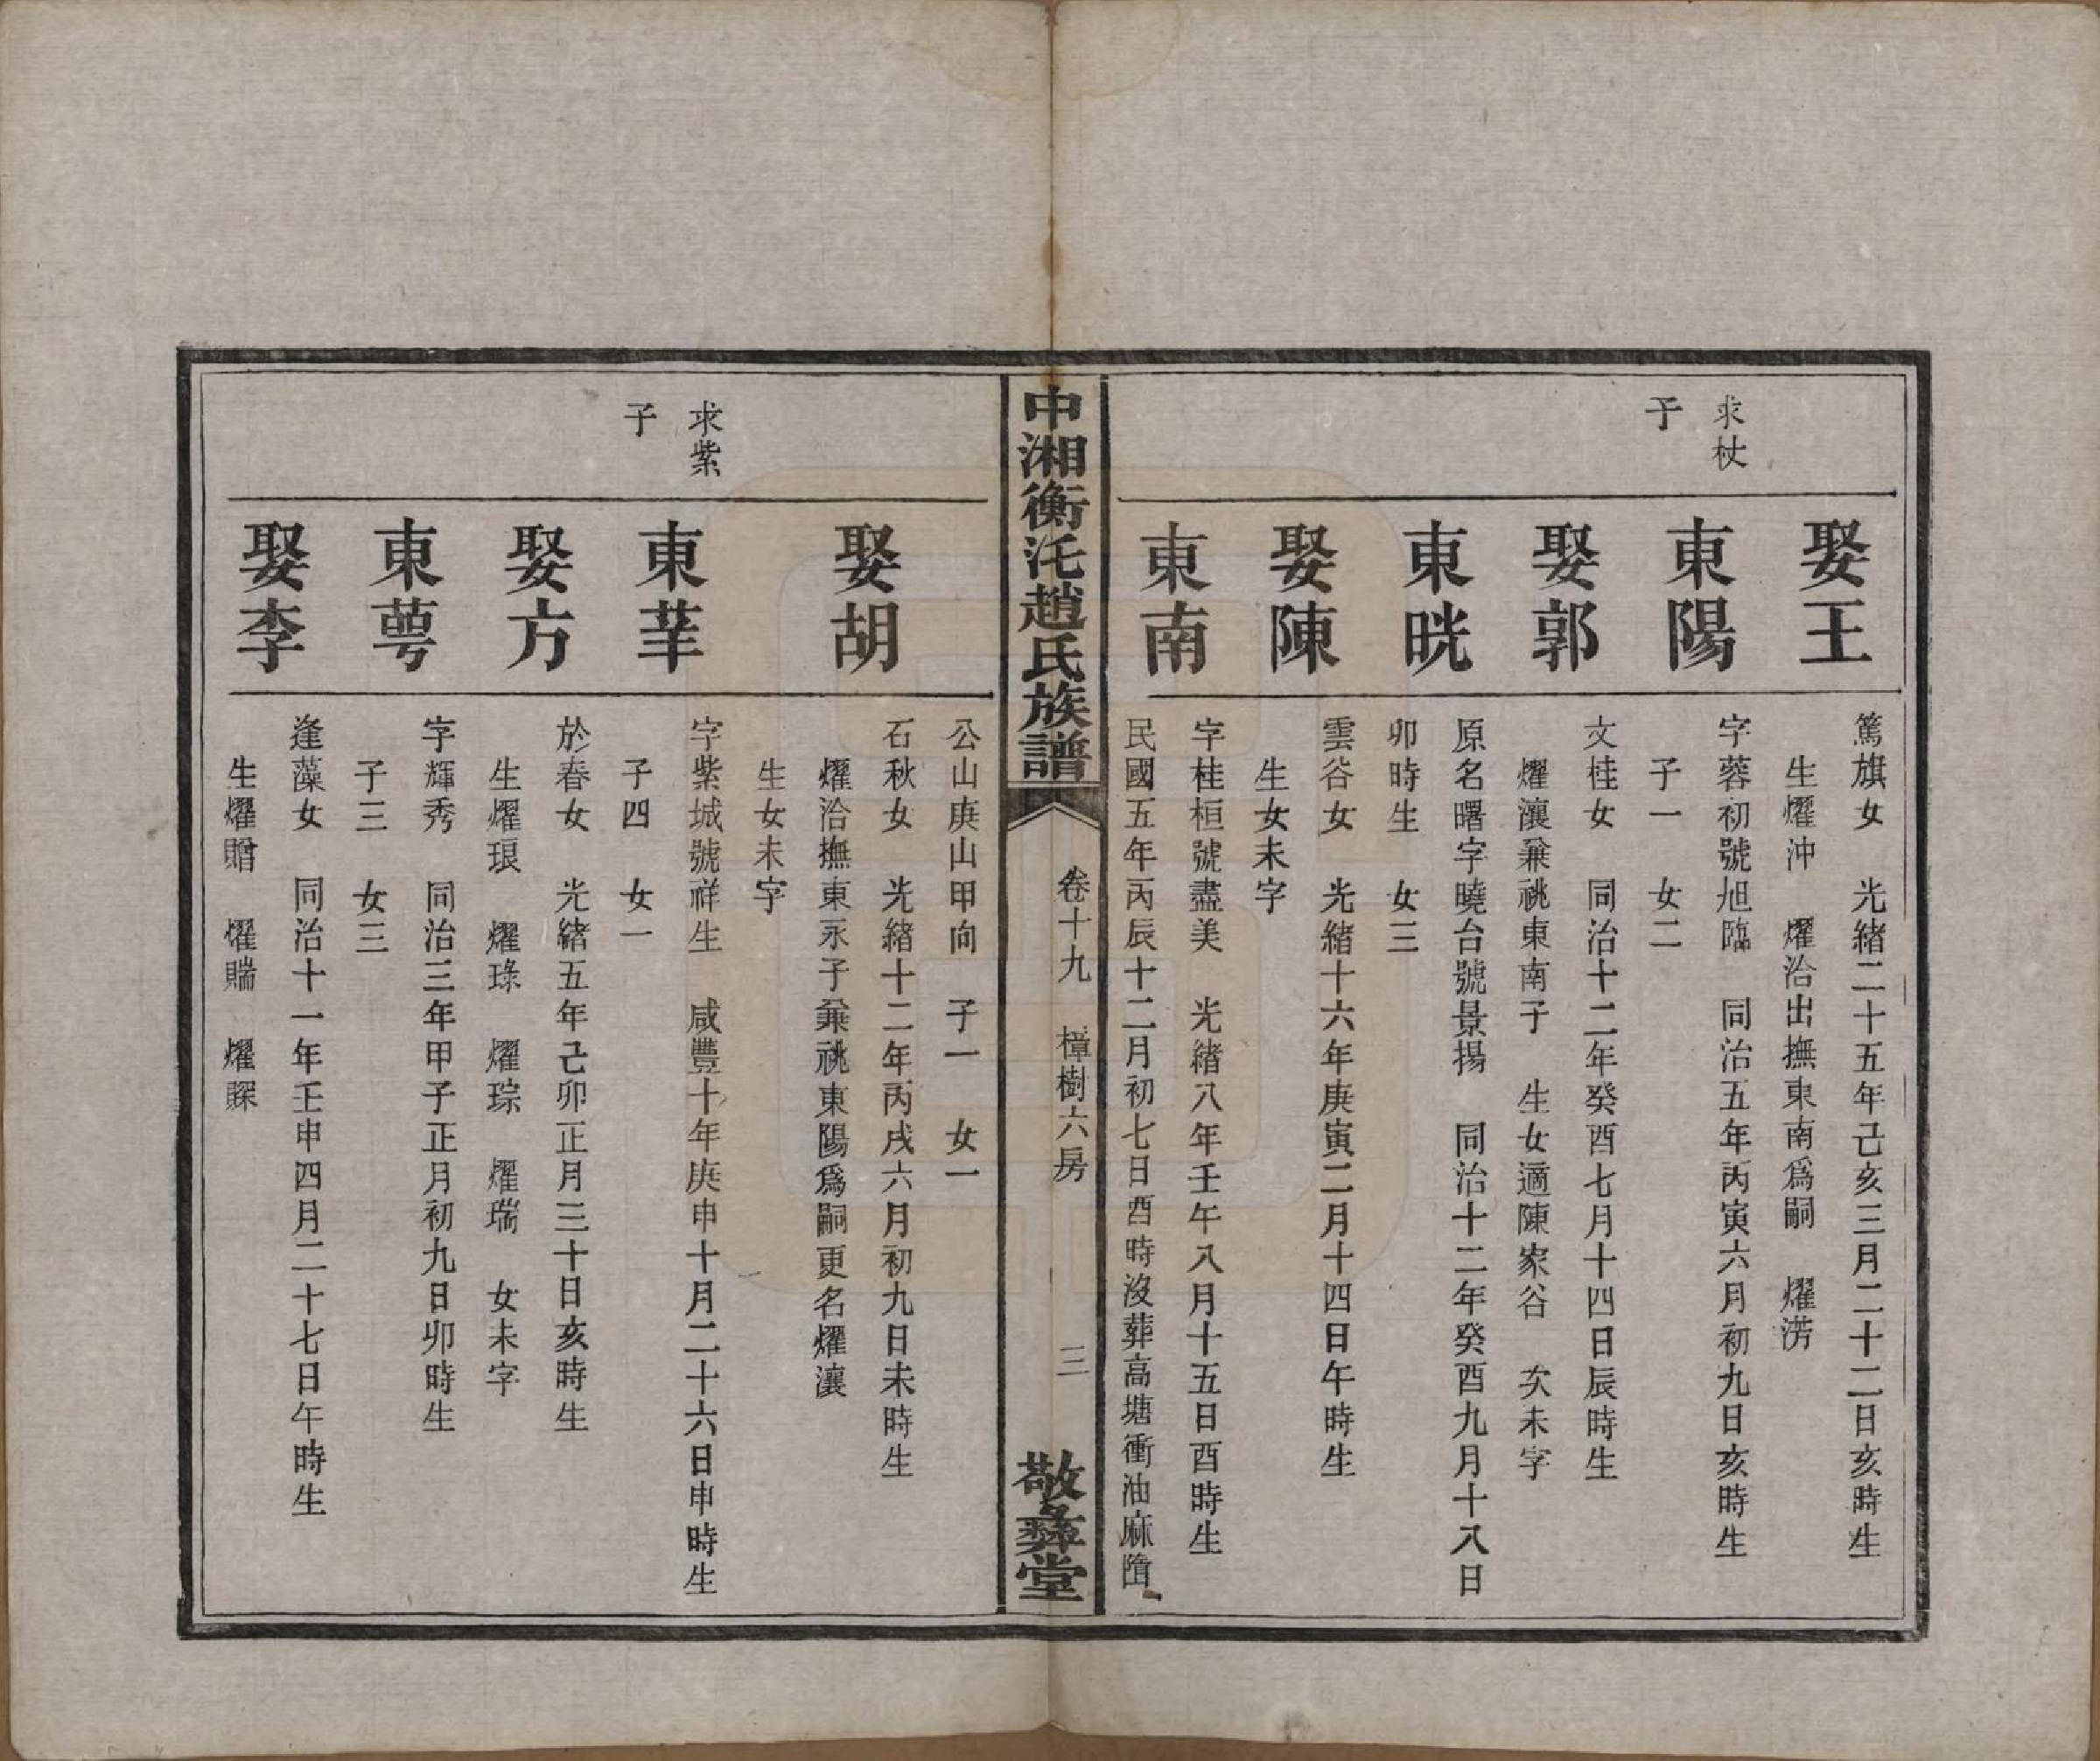 求杖
子
娶王
篤旗女　光緒二十五年己亥三月二十二日亥時生
生燿沖　燿治出撫東南爲嗣　燿淓
東陽
字蓉初號旭臨　同治五年丙寅六月初九日亥時生
子一　女二
娶郭
文桂女　同治十二年癸酉七月十四日辰時生
燿瀼兼祧東南子　生女適陳家谷　次未字
東晄
原名曙字曉台號景揚　同治十二年癸酉九月十八日
卯時生　女三
娶陳
雲谷女　光緒十六年庚寅二月十四日午時生
生女未字
東南
字桂桓號盡美　光緒八年壬午八月十五日酉時生
民國五年丙辰十二月初七日酉時沒葬高塘衝油麻㘯
中湘衡汑趙氏族譜
卷十九　樟樹六房
三
敬彝堂
公山庚山甲向　子一　女一
娶胡
石秋女　光緒十二年丙戌六月初九日未時生
燿治撫東永子兼祧東陽爲嗣更名燿瀼
生女未字
求紫
子
東莘
字紫城號祥生　咸豐十年庚申十月二十六日申時生
子四　女一
娶方
於春女　光緒五年己卯正月三十日亥時生
生燿琅　燿琭　燿琮　燿瑞　女未字
東萼
字輝秀　同治三年甲子正月初九日卯時生
子三　女三
娶李
逢藻女　同治十一年壬申四月二十七日午時生
生燿贈　燿賰　燿賝